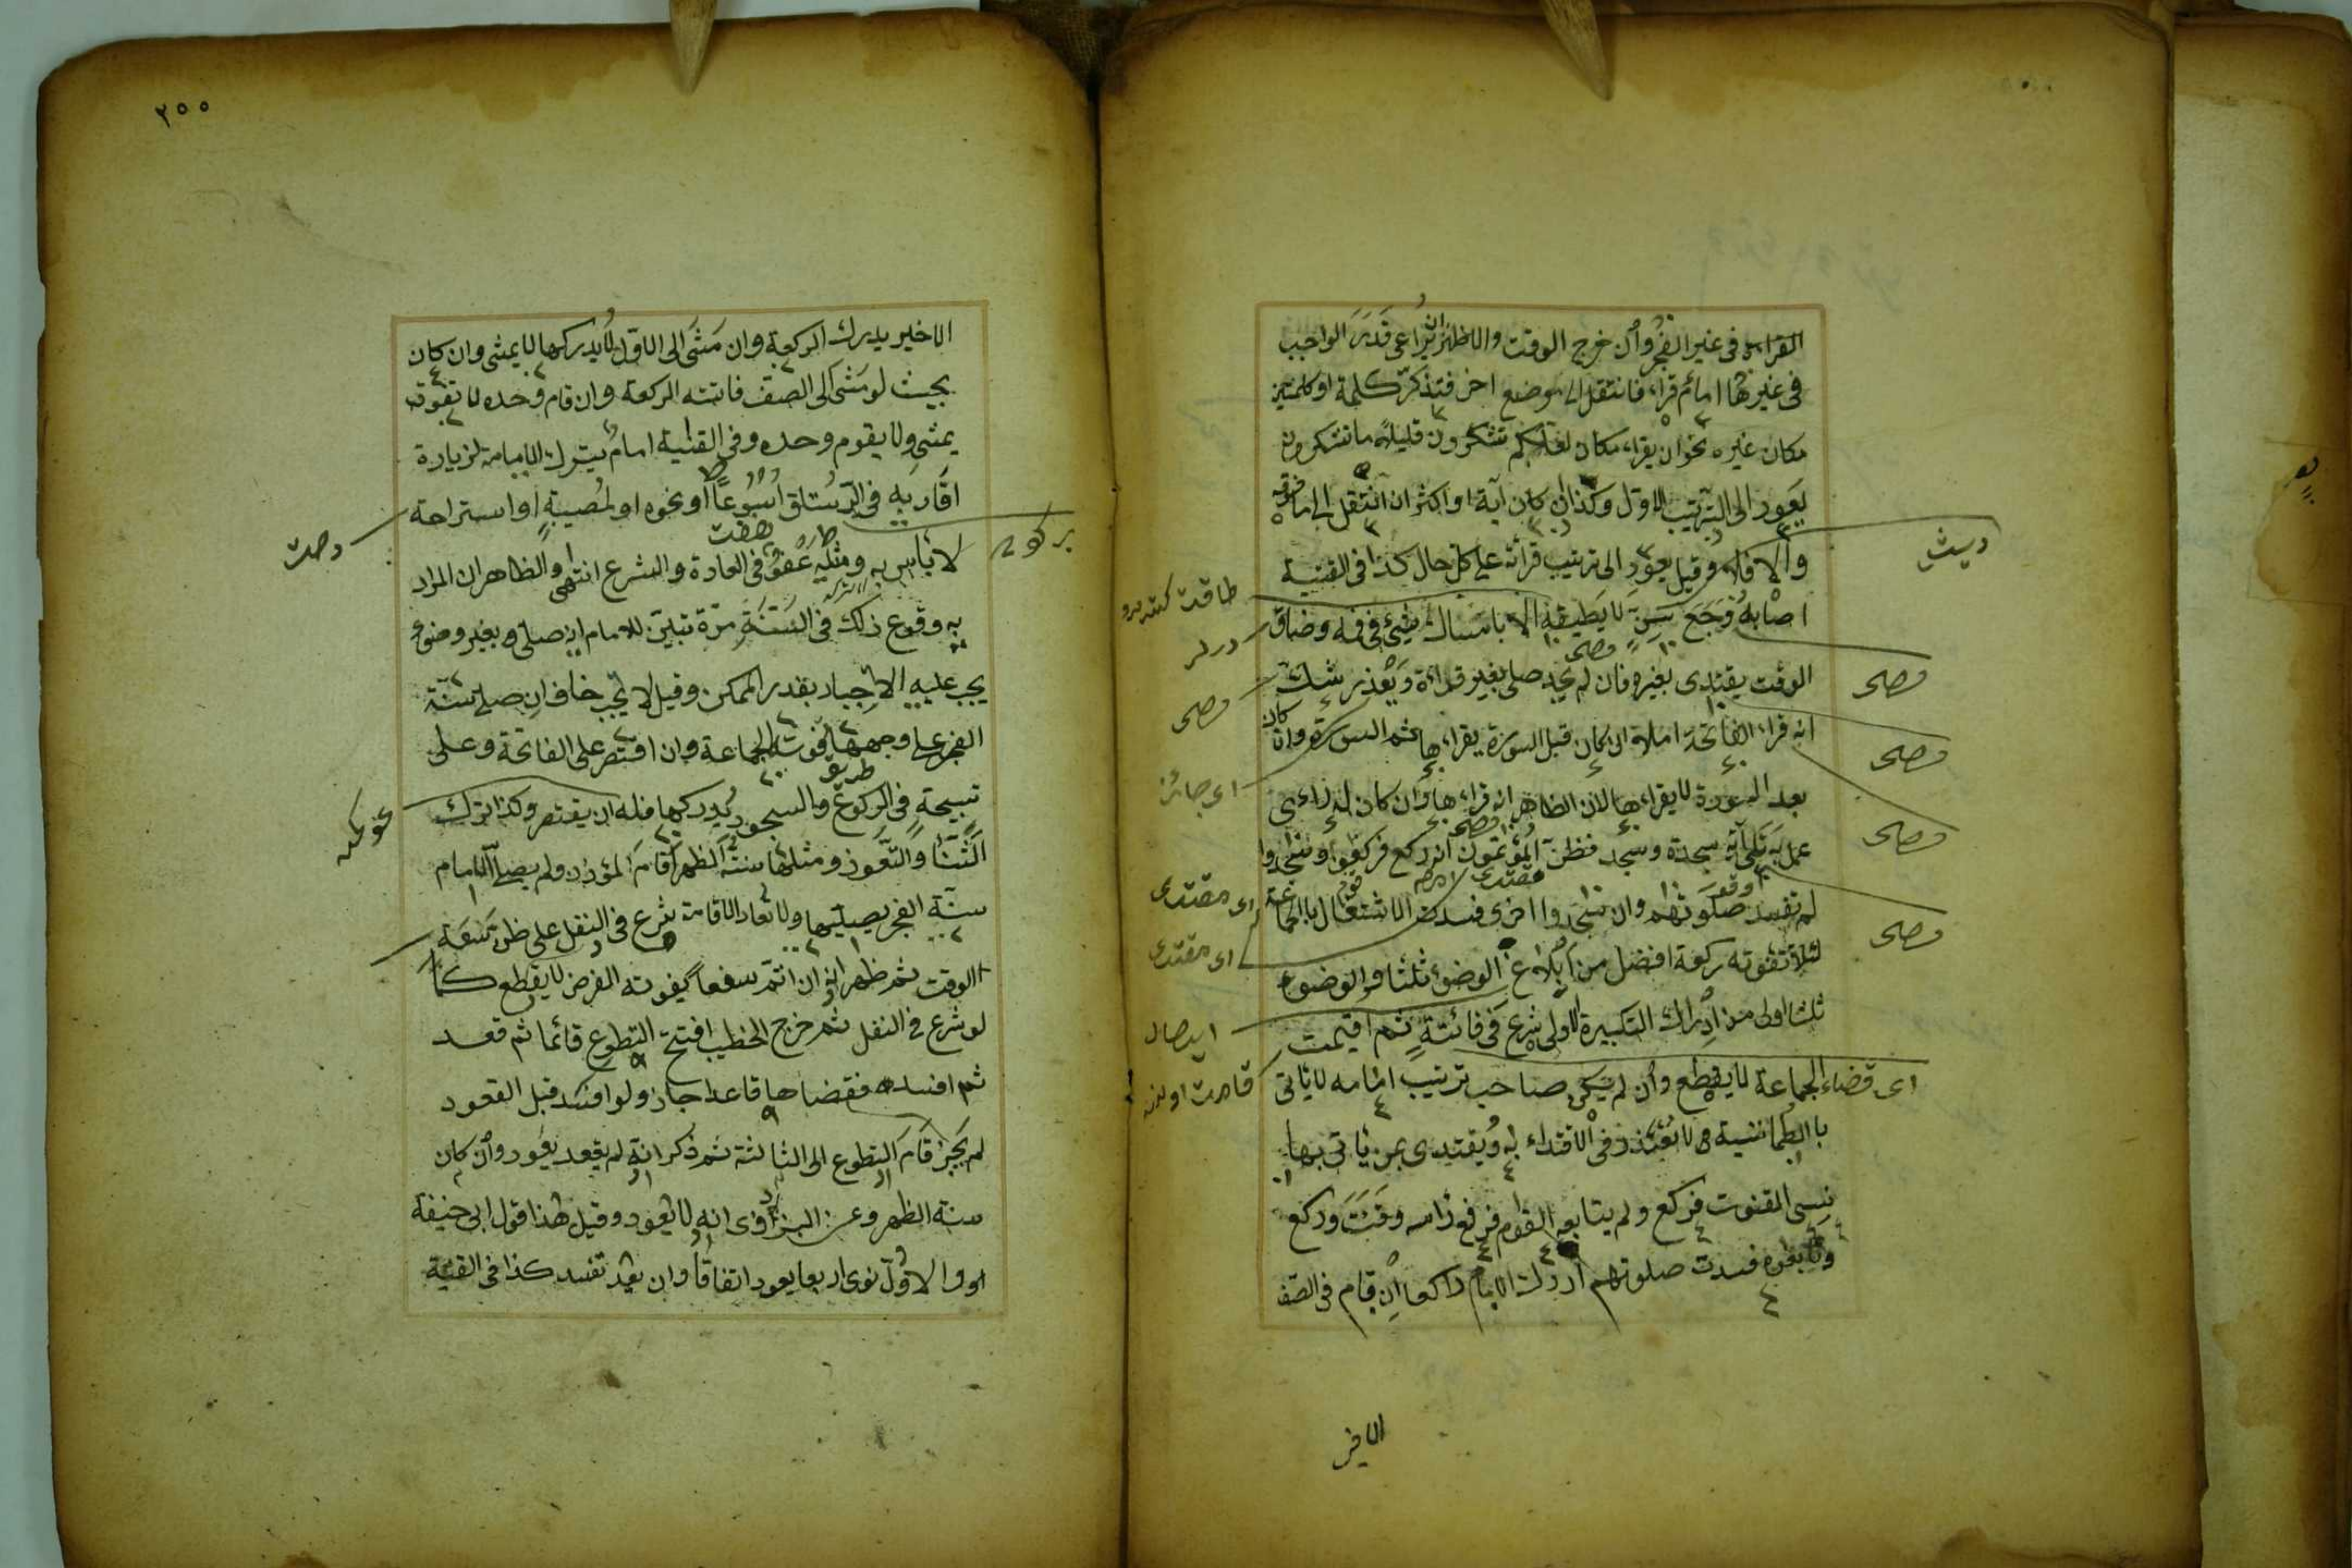 القراءة في غير الفجر وان خرج الوقت والاظهر ان يراعي قدر الواجب
في غيرها امام قراء فانتقل الى موضع اخر فتذكر كلمة او كلمتين
مكان غيره نحو ان يقراء مكان لعلكم تشكرون قليلا ما تشكرون
يعود الى الترتيب الاول وكذا ان كان آية او اكثر ان انتقل الى ما فوقه
والا فلا وقيل يعود الى ترتيب قرائة على كل حال كذا في القنية
اصابه وجع سن لا يطيقه الا بامساك شيئ في فمه وضاق
الوقت يقتدى بغيره فان لم يجد صلى بغير قراءة ويعذر شك
انه قراء الفاتحة املا ان كان قبل السورة يقراءها ثم السورة وان كان
بعد السورة لا يقراءها لان الظاهر انه قراءها وان كان له رأى
عمل به تلى آية سجدة وسجد فظن المؤتمون انه ركع فركعوا وسجدوا
لم تفسد صلوتهم وان سجدوا اخرى فسدت الاشتغال بالجماعة
لئلا تفوته ركعة افضل من ابلاغ الوضوء ثلثا والوضوء
ثلثا اولى من ادراك التكبيرة الاولى شرع في فائتة ثم اقيمت
الجماعة لا يقطع وان لم يكن صاحب ترتيب امامه لا يأتى
بالطمانينة لا يعذر في الاقتداء به ويقتدى بمن يأتى بها
نسى القنوت فركع ولم يتابعه القوم فرفع رأسه وقنت وركع
وتابعوه فسدت صلوتهم ادرك الامام راكعا ان قام في الصف
دیش
وصحى
وصحى
وصحى
وصحى
اى قضاء
وصحى
اى جائز
اى مقتدى
اى مقتدى
ايصال
قامت اولنه
٢٥٥
الاخير يدرك الركعة وان مشى الى الاول لا يدركها لا يمشى وان كان
بحيث لو مشى الى الصف فاتته الركعة وان قام وحده لا تفوته
يمشي ولا يقوم وحده وفي القنية امام يترك الامامة لزيارة
اقاربه في الرستاق اسبوعا او نحوه او لمصيبة او استراحة
لا بأس به ومثله عفو في العادة والشرع انتهى والظاهر ان المراد
به وقوع ذلك في السنة مرة تبين للامام انه صلى بغير وضوء
يجب عليه الاخبار بقدر الممكن وقيل لا يجب خاف ان صلى سنة
الفجر على وجهها تفوت الجماعة وان اقتصر على الفاتحة وعلى
تسبيحة في الركوع والسجود يدركها فله ان يقتصر وكذا ترك
الثناء والتعوذ ومثلها سنة الظهر اقام المؤذن ولم يصل الامام
سنة الفجر يصليها ولا تعاد الاقامة شرع في النفل على ظن سعة
الوقت ثم ظهر انه ان اتم شفعا يفوته الفرض لا يقطع كما
لو شرع في النفل ثم خرج الخطيب افتتح التطوع قائما ثم قعد
ثم افسده فقضاها قاعدا جاز ولو افسد قبل القعود
لم يجز قام التطوع الى الثالثة ثم ذكر انه لم يقعد يعود وان كان
سنة الظهر وعن البزدوى انه لا يعود وقيل هذا قول ابى حنيفة
والاول نوى اربعا يعود اتفاقا وان لم يعد تفسد كذا في القنية